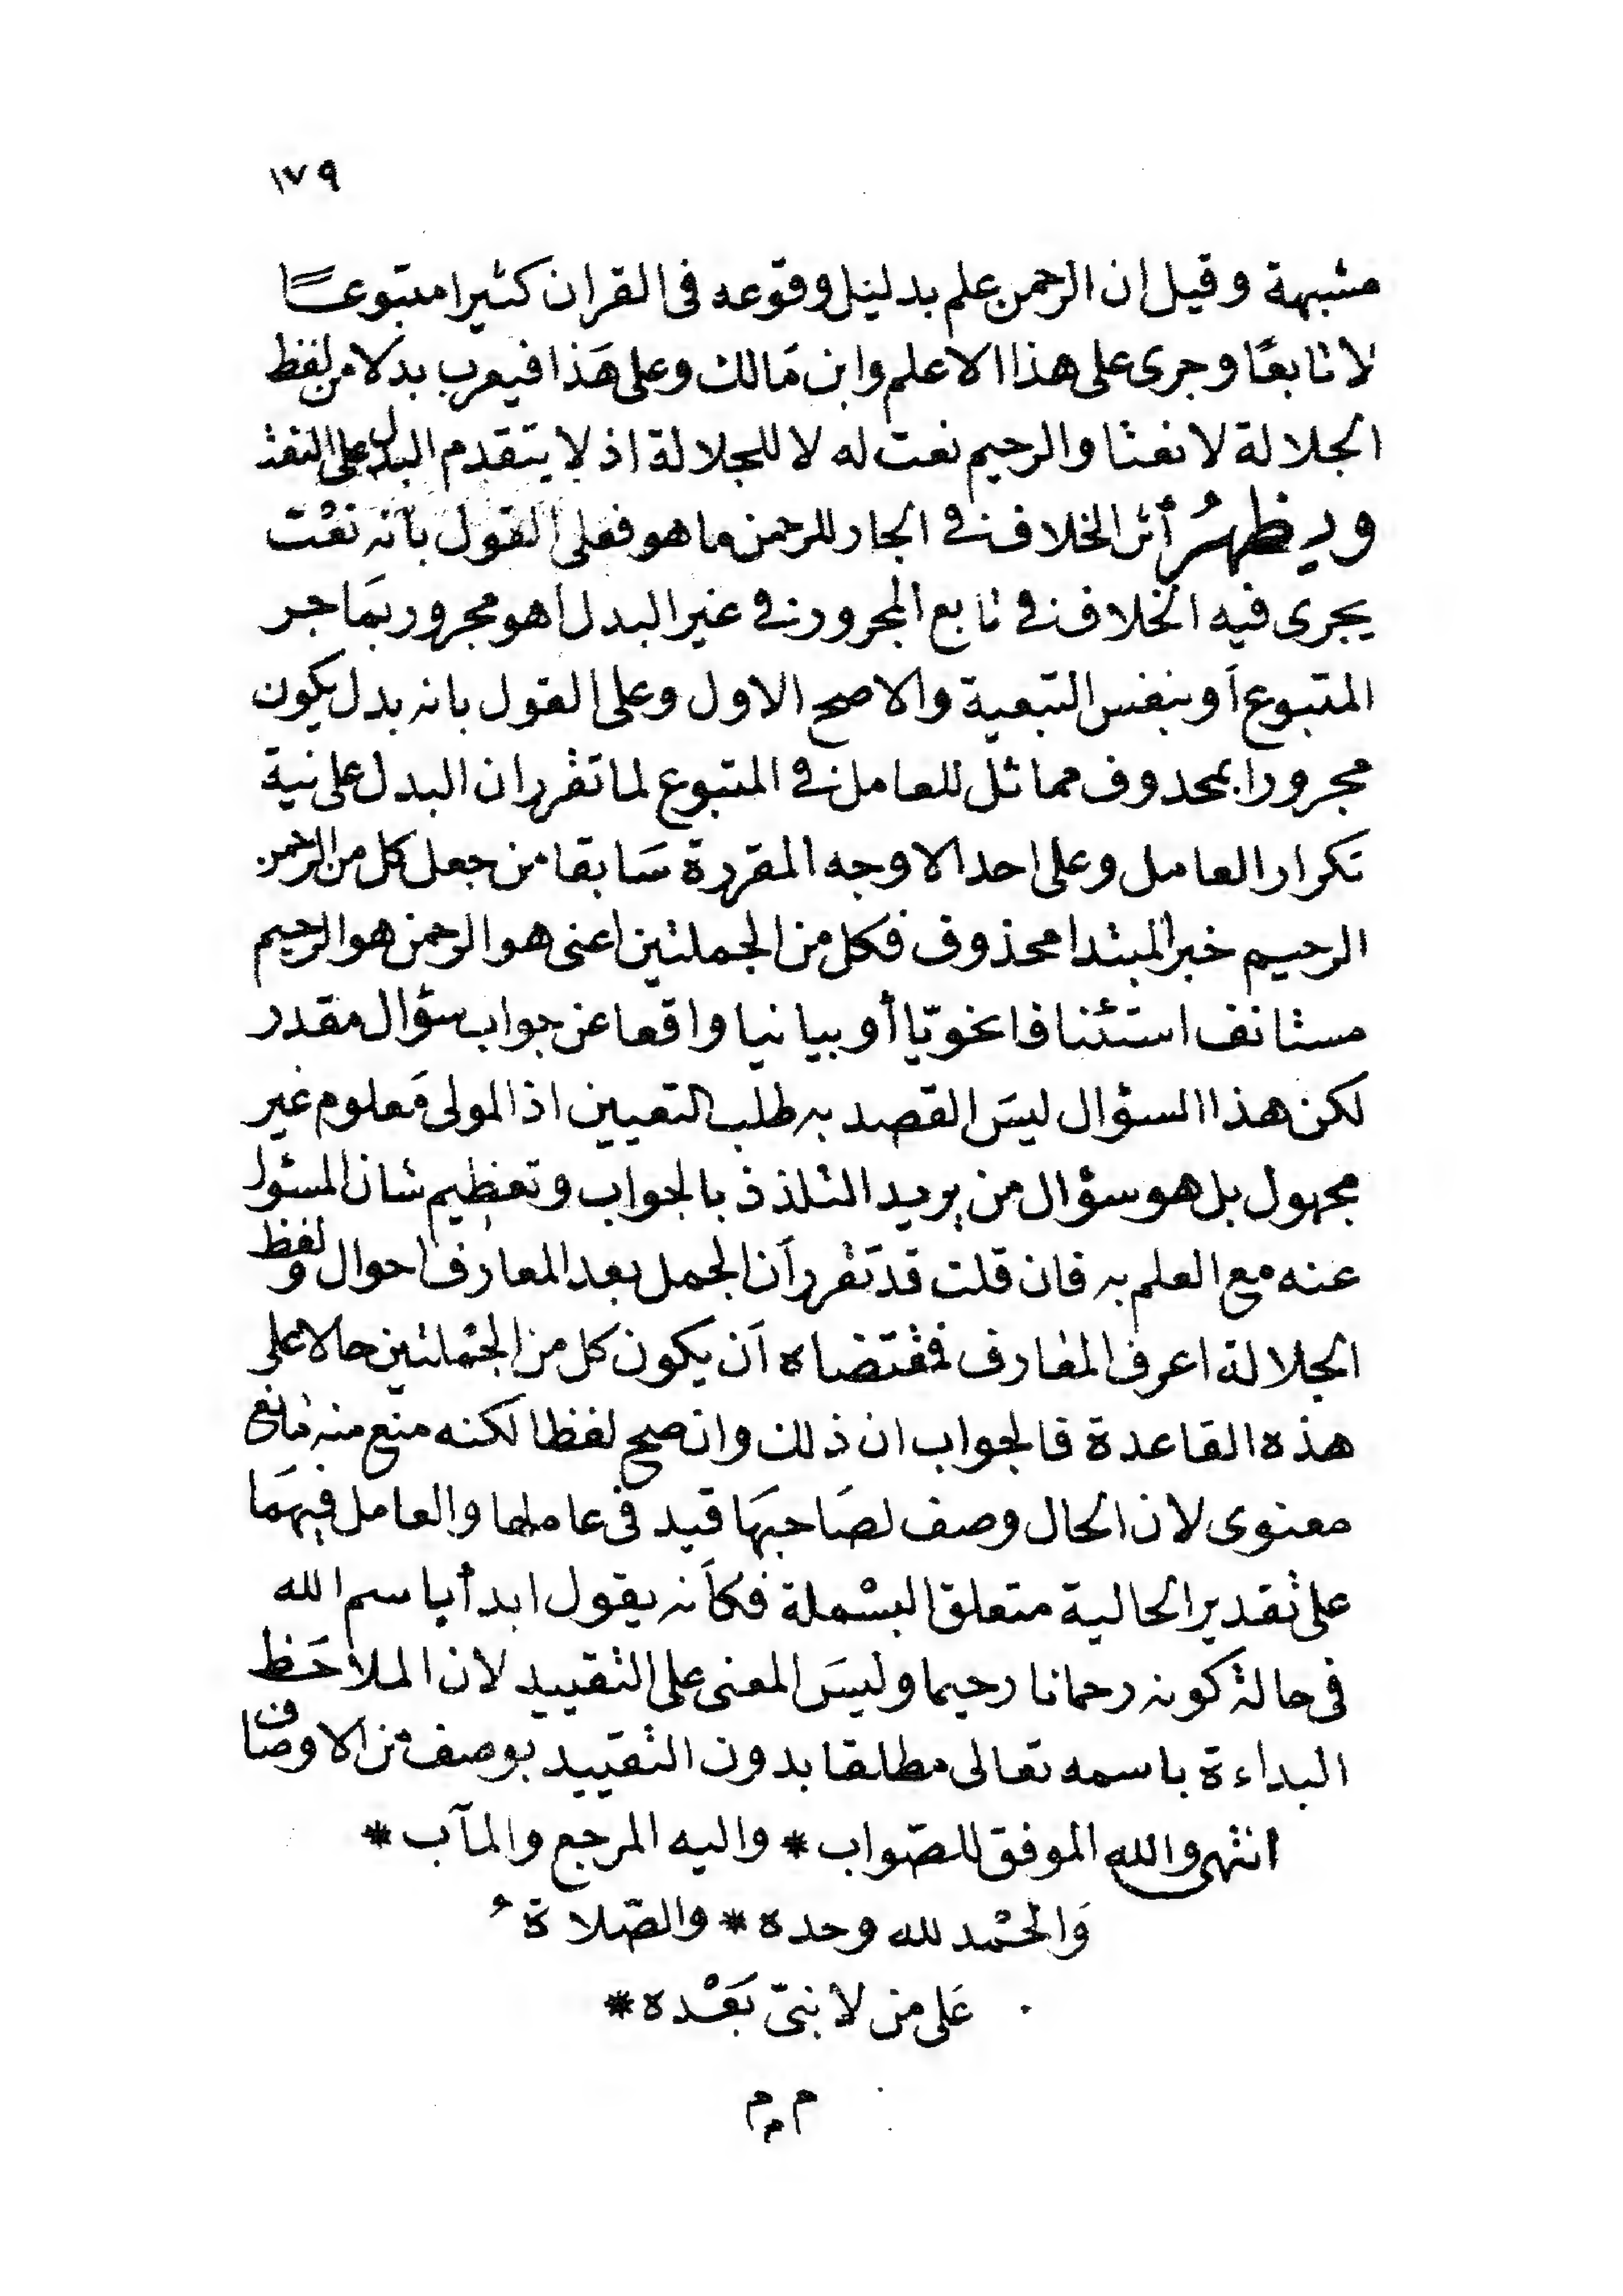 ١٧٩
مشبهة وقيل ان الرحمن علم بدليل وقوعه فى القران كثيرا متبوعًا
لا تابعًا وجرى على هذا الاعلم وابن مَالك وعلى هَذا فيعرب بدلا من لفظ
الجلالة لا نعتا والرحيم نعت له لا للجلالة اذ لا يتقدم البدل على النعت
ويظهرُ أثر الخلاف فى الجار للرحمن ما هو فعلى القول بأنه نعْت
يجرى فيه الخلاف فى تابع المجرور فى غير البدل أهو مجرور بمَا جر
المتبوع أو بنفس التبعية والاصح الاول وعلى القول بانه بدل يكون
مجرورا بمحدوف مماثل للعامل فى المتبوع لما تقرر ان البدل على نية
تكرار العامل وعلى احد الاوجه المقررة سَابقا من جعل كل من الرحمن
الرحيم خبر المبتدا محذوف فكل من الجملتين اعنى هو الرحمن هو الرحيم
مستانف استئنافا نحويّا أو بيانيا واقعا عن جواب سؤال مقدر
لكن هذا السؤال ليسَ القصد به طلب التعيين اذ المولى مَعلوم غير
مجهول بل هو سؤال من يريد التلذذ بالجواب وتعظيم شان المسئول
عنه مع العلم به فان قلت قد تقرر أن الجمل بعد المعارف احوال ولفظ
الجلالة اعرف المعارف فمقتضاه أن يكون كل من الجملتين حالا على
هذه القاعدة فالجواب ان ذلك وان صح لفظا لكنه منع منه مانع
معنوى لان الحال وصف لصَاحبهَا قيد فى عاملها والعامل فيهمَا
على تقدير الحالية متعلق البسْملة فكأنه يقول ابدأ باسم الله
فى حالة كونه رحمانا رحيما وليسَ المعنى على التقييد لان الملاحَظ
البداءة باسمه تعالى مطلقا بدون التقييد بوصف من الاوصاف
انتهى والله الموفق للصّواب * واليه المرجع والمآب *
وَالحمْد لله وحده * والصّلاةُ
عَلى من لا نبىّ بَعْده *
م م م